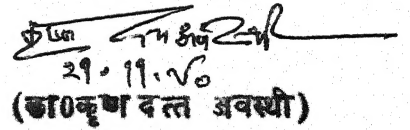 कृष्ण दत्त अवस्थी
२१.११.८०
(डा0कृष्ण दत्त अवस्थी)